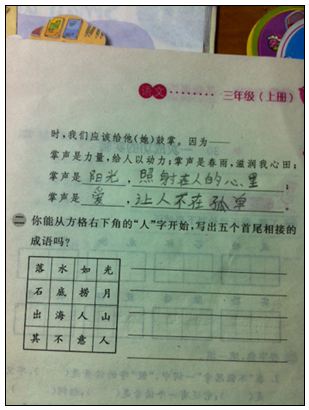 语文········三年级（上册）
时，我们应该给他（她）鼓掌。因为
掌声是力量，给人以动力；掌声是春雨，滋润我心田；
掌声是 阳光，照射在人的心里；
掌声是 爱，让人不在孤单。
二 你能从方格右下角的“人”字开始，写出五个首尾相接的
成语吗？
落 水 如 光
石 底 捞 月
出 海 人 山
其 不 意 人